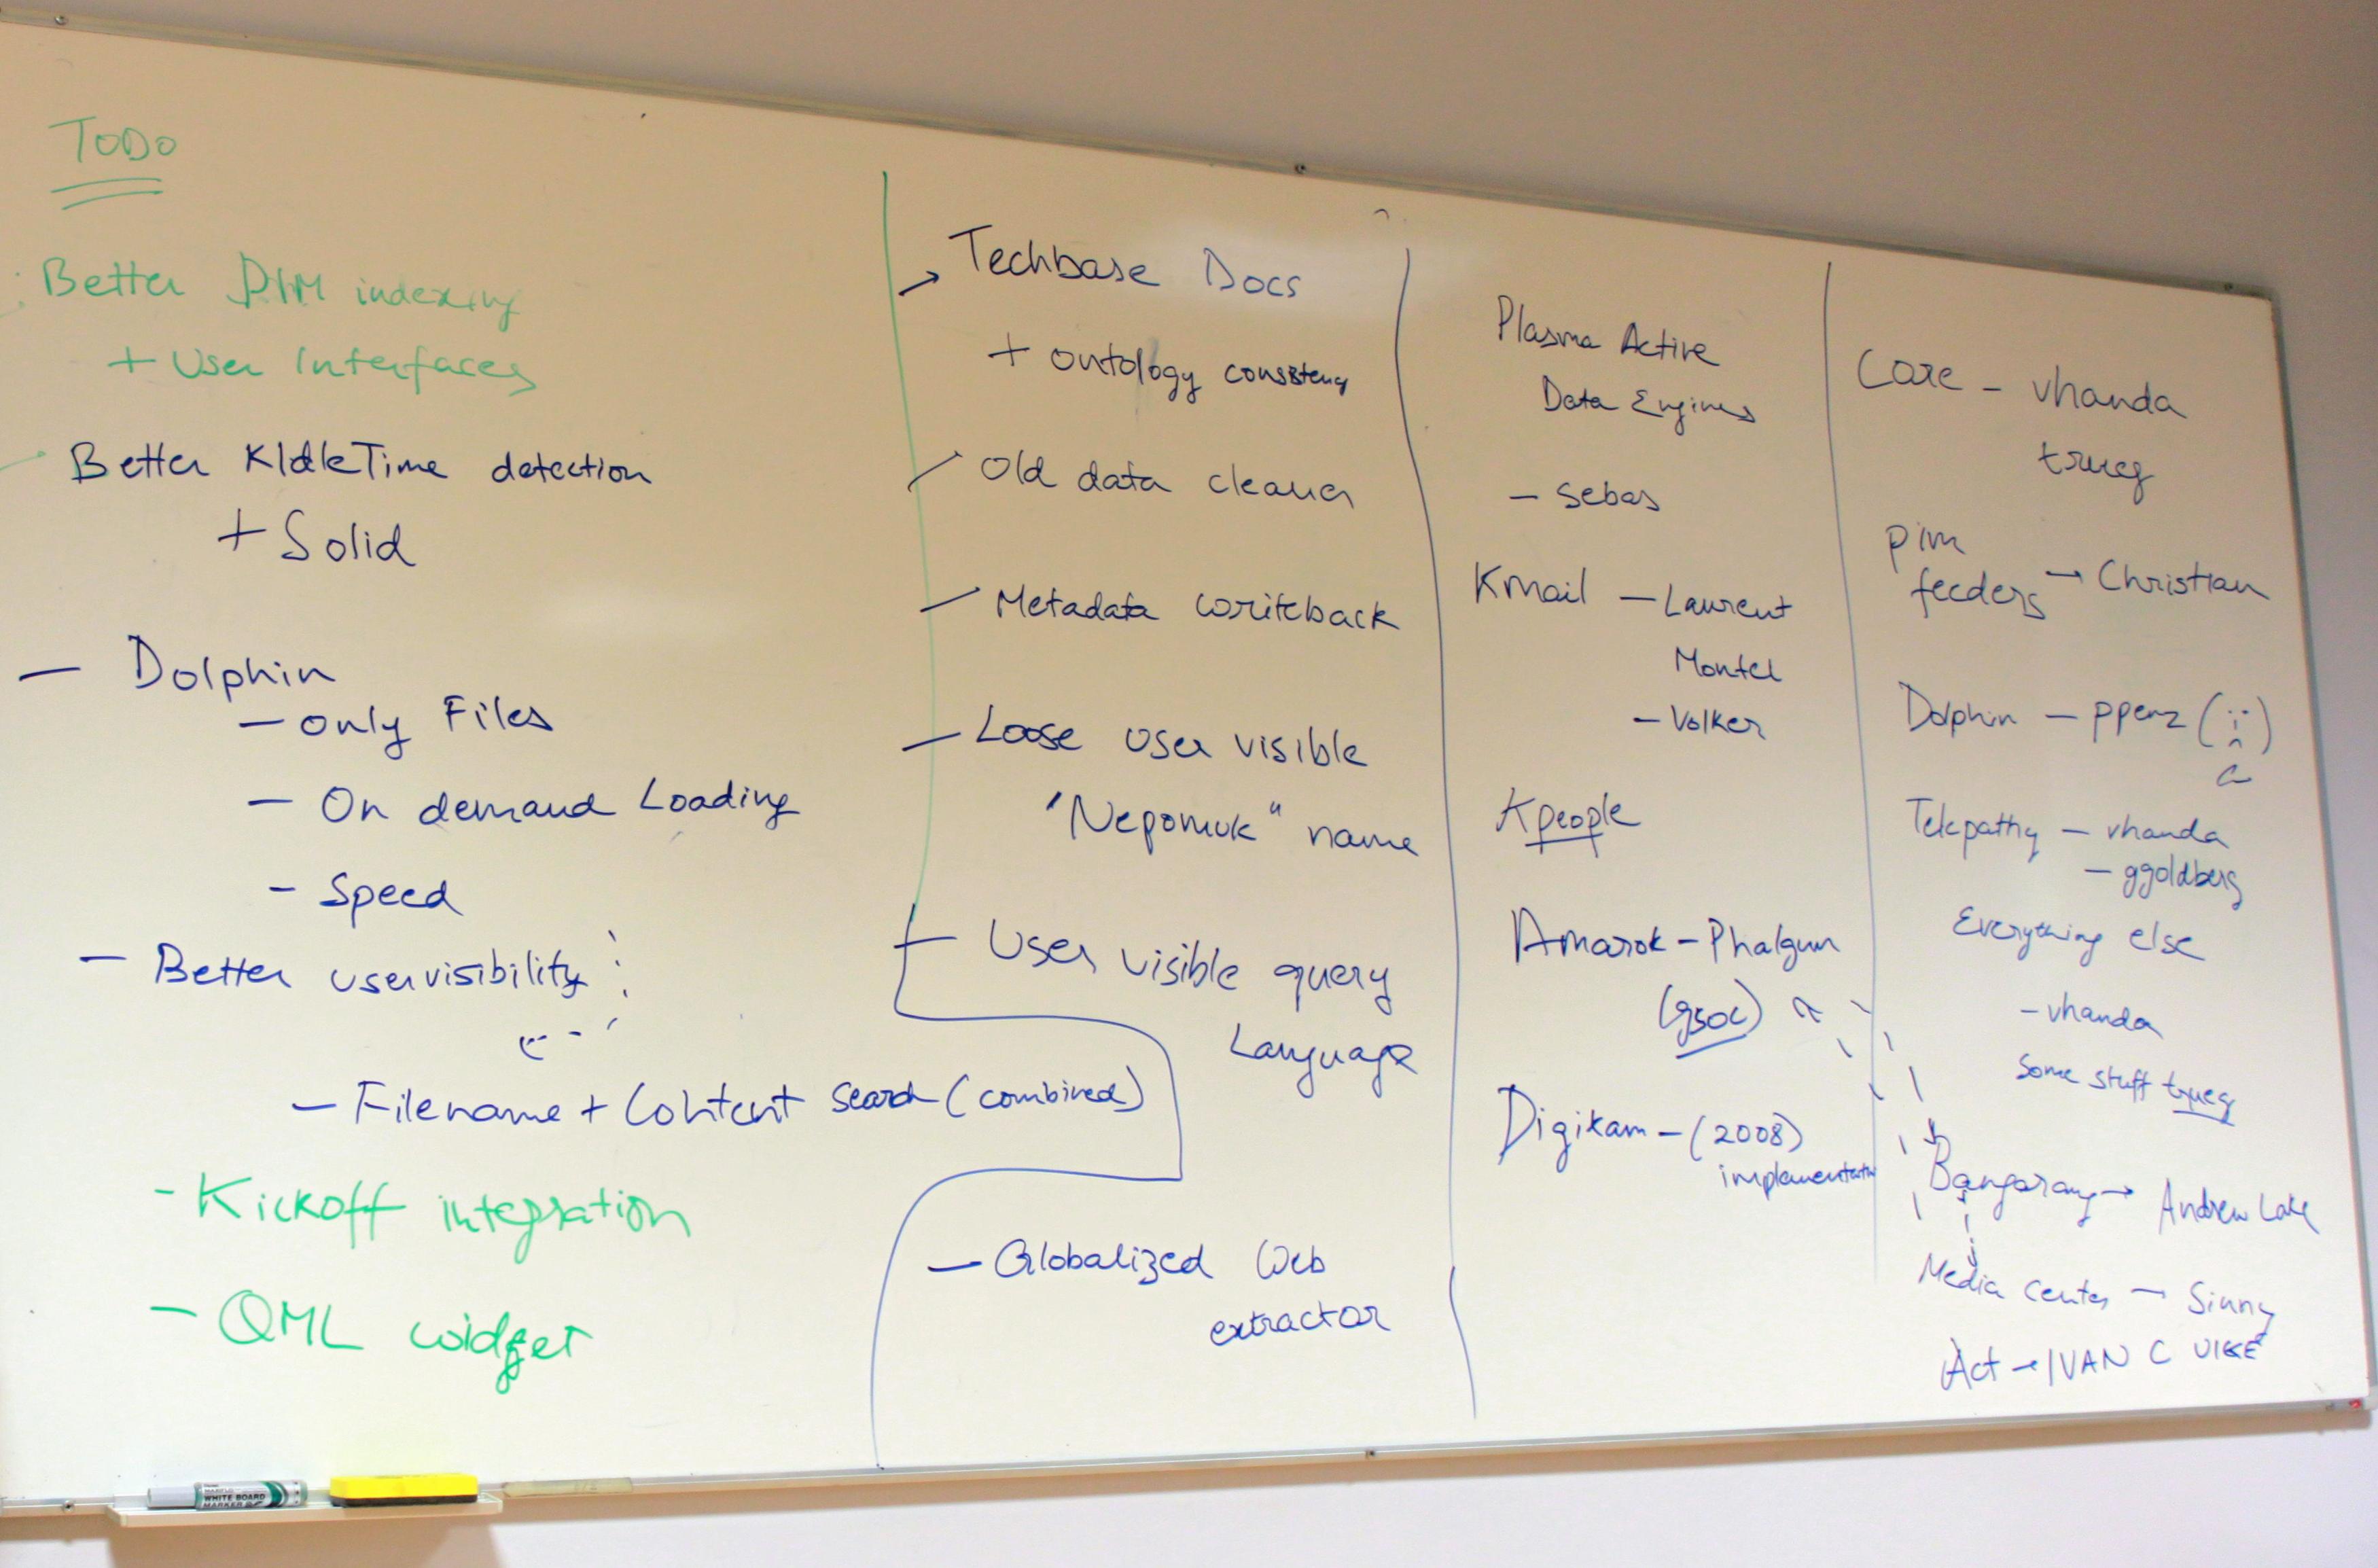 TODO
Better PIM indexing
+ User Interfaces
Better KIdleTime detection
+ Solid
- Dolphin
- only Files
- On demand Loading
- Speed
- Better uservisibility
- Filename + Content search (combined)
- Kickoff integration
- QML widget
→ Techbase Docs
+ ontology consistency
- Old data cleaner
- Metadata writeback
- Loose user visible
"Nepomuk" name
- User visible query
Language
- Globalized Web
extractor
Plasma Active
Data Engines
- sebas
Kmail - Laurent
Montel
- Volker
Kpeople
Amarok - Phalgun
(gsoc)
Digikam - (2008)
implementatn
Core - vhanda
trueg
pim
feeders → Christian
Dolphin - ppenz
Telepathy - vhanda
- ggoldberg
Everything else
- vhanda
some stuff trueg
Bangarang → Andrew Lake
Media center → Sinny
Act → IVAN C
WHITE BOARD
MARKER